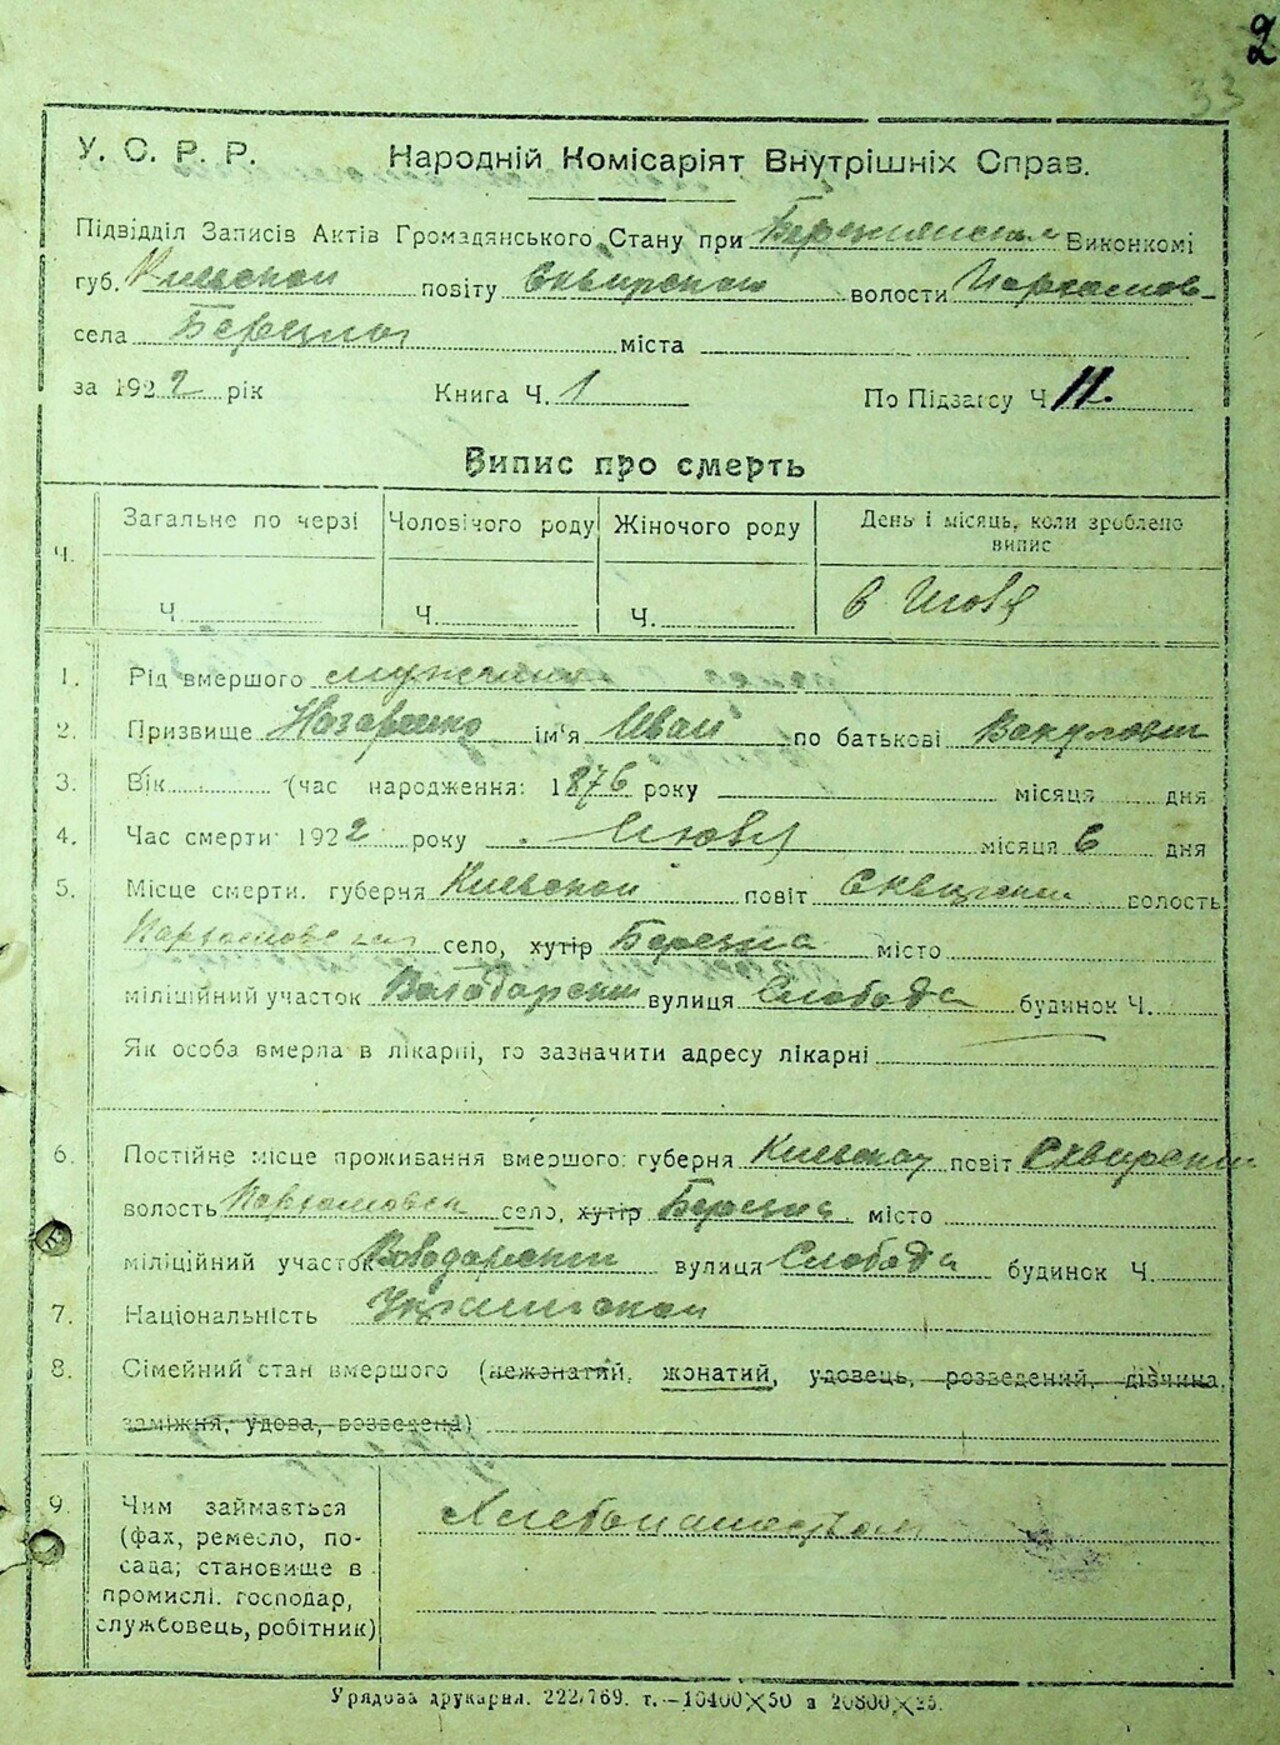 2
33
У. С. Р. Р. Народній Комісаріят Внутрішніх Справ.
Підвідділ Записів Актів Громадянського Стану при Виконкомі
губ. Киевской повіту Сквирской волости Пархомов-
села Березной міста
за 1922 рік Книга Ч. 1 По Підзагсу Ч 11.
Випис про смерть
Ч. Загальне по черзі Чоловічого роду Жіночого роду День і місяць, коли зроблено випис
Ч. Ч. Ч. 6 Июля
1. Рід вмершого мужчина
2. Призвище Назаренко ім'я Иван по батькові Вакулович
3. Вік (час народження: 1876 року місяця дня
4. Час смерти 1922 року Июля місяця 6 дня
5. Місце смерти. губерня Киевской повіт Сквирский волость
Пархомовская село, хутір Березна місто
міліційний участок Володарский вулиця Слобода будинок Ч.
Як особа вмерла в лікарні, то зазначити адресу лікарні
6. Постійне місце проживання вмершого: губерня Киевской повіт Сквирский
волость Пархомовск село, хутір Березна місто
міліційний участок Володарский вулиця Слобода будинок Ч.
7. Національність Украинской
8. Сімейний стан вмершого (нежонатий, жонатий, удовець, розведений, дівчина,
заміжня, удова, розведена)
9. Чим займається
(фах, ремесло, по-
сада; становище в
промислі. господар,
службовець, робітник)
Хлебопашеством
Урядова друкарня. 222/769. т.—10400×50 з 20800×25.